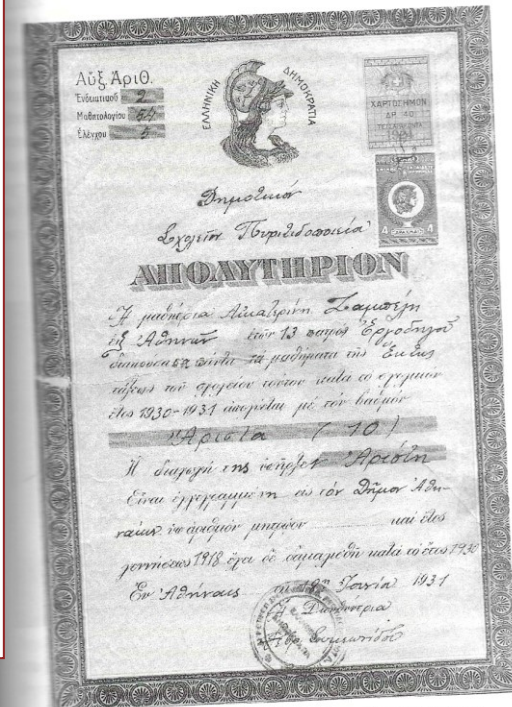 Αὔξ. Ἀριθ.
Ἐνδεικτικοῦ 2
Μαθητολογίου 54
Ἐλέγχου 5
ΕΛΛΗΝΙΚΗ ΔΗΜΟΚΡΑΤΙΑ
ΧΑΡΤΟΣΗΜΟΝ
ΔΡ. 40
4 4
Δημοτικὸν
Σχολεῖον Πυριτιδοποιεῖα
ΑΠΟΛΥΤΗΡΙΟΝ
Ἡ μαθήτρια Αἰκατερίνη Ζαμπέλη
ἐξ Ἀθηνῶν ἐτῶν 13 πατρὸς Ἐργοδηγοῦ
διακούσασα πάντα τὰ μαθήματα τῆς Ἕκτης
τάξεως τοῦ σχολείου τούτου κατὰ τὸ σχολικὸν
ἔτος 1930-1931 ἀπολύεται μὲ τὸν βαθμὸν
"Ἄριστα (10)
Ἡ διαγωγή της ὑπῆρξεν Ἀρίστη
Εἶναι ἐγγεγραμμένη εἰς τὸν Δῆμον Ἀθη-
ναίων ὑπ' ἀριθμὸν μητρώου καὶ ἔτος
γεννήσεως 1918 ἔχει δὲ δαμαλισθῆ κατὰ τὸ ἔτος 1930
Ἐν Ἀθήναις Ἰουνίου 1931
Ἡ Διευθύντρια